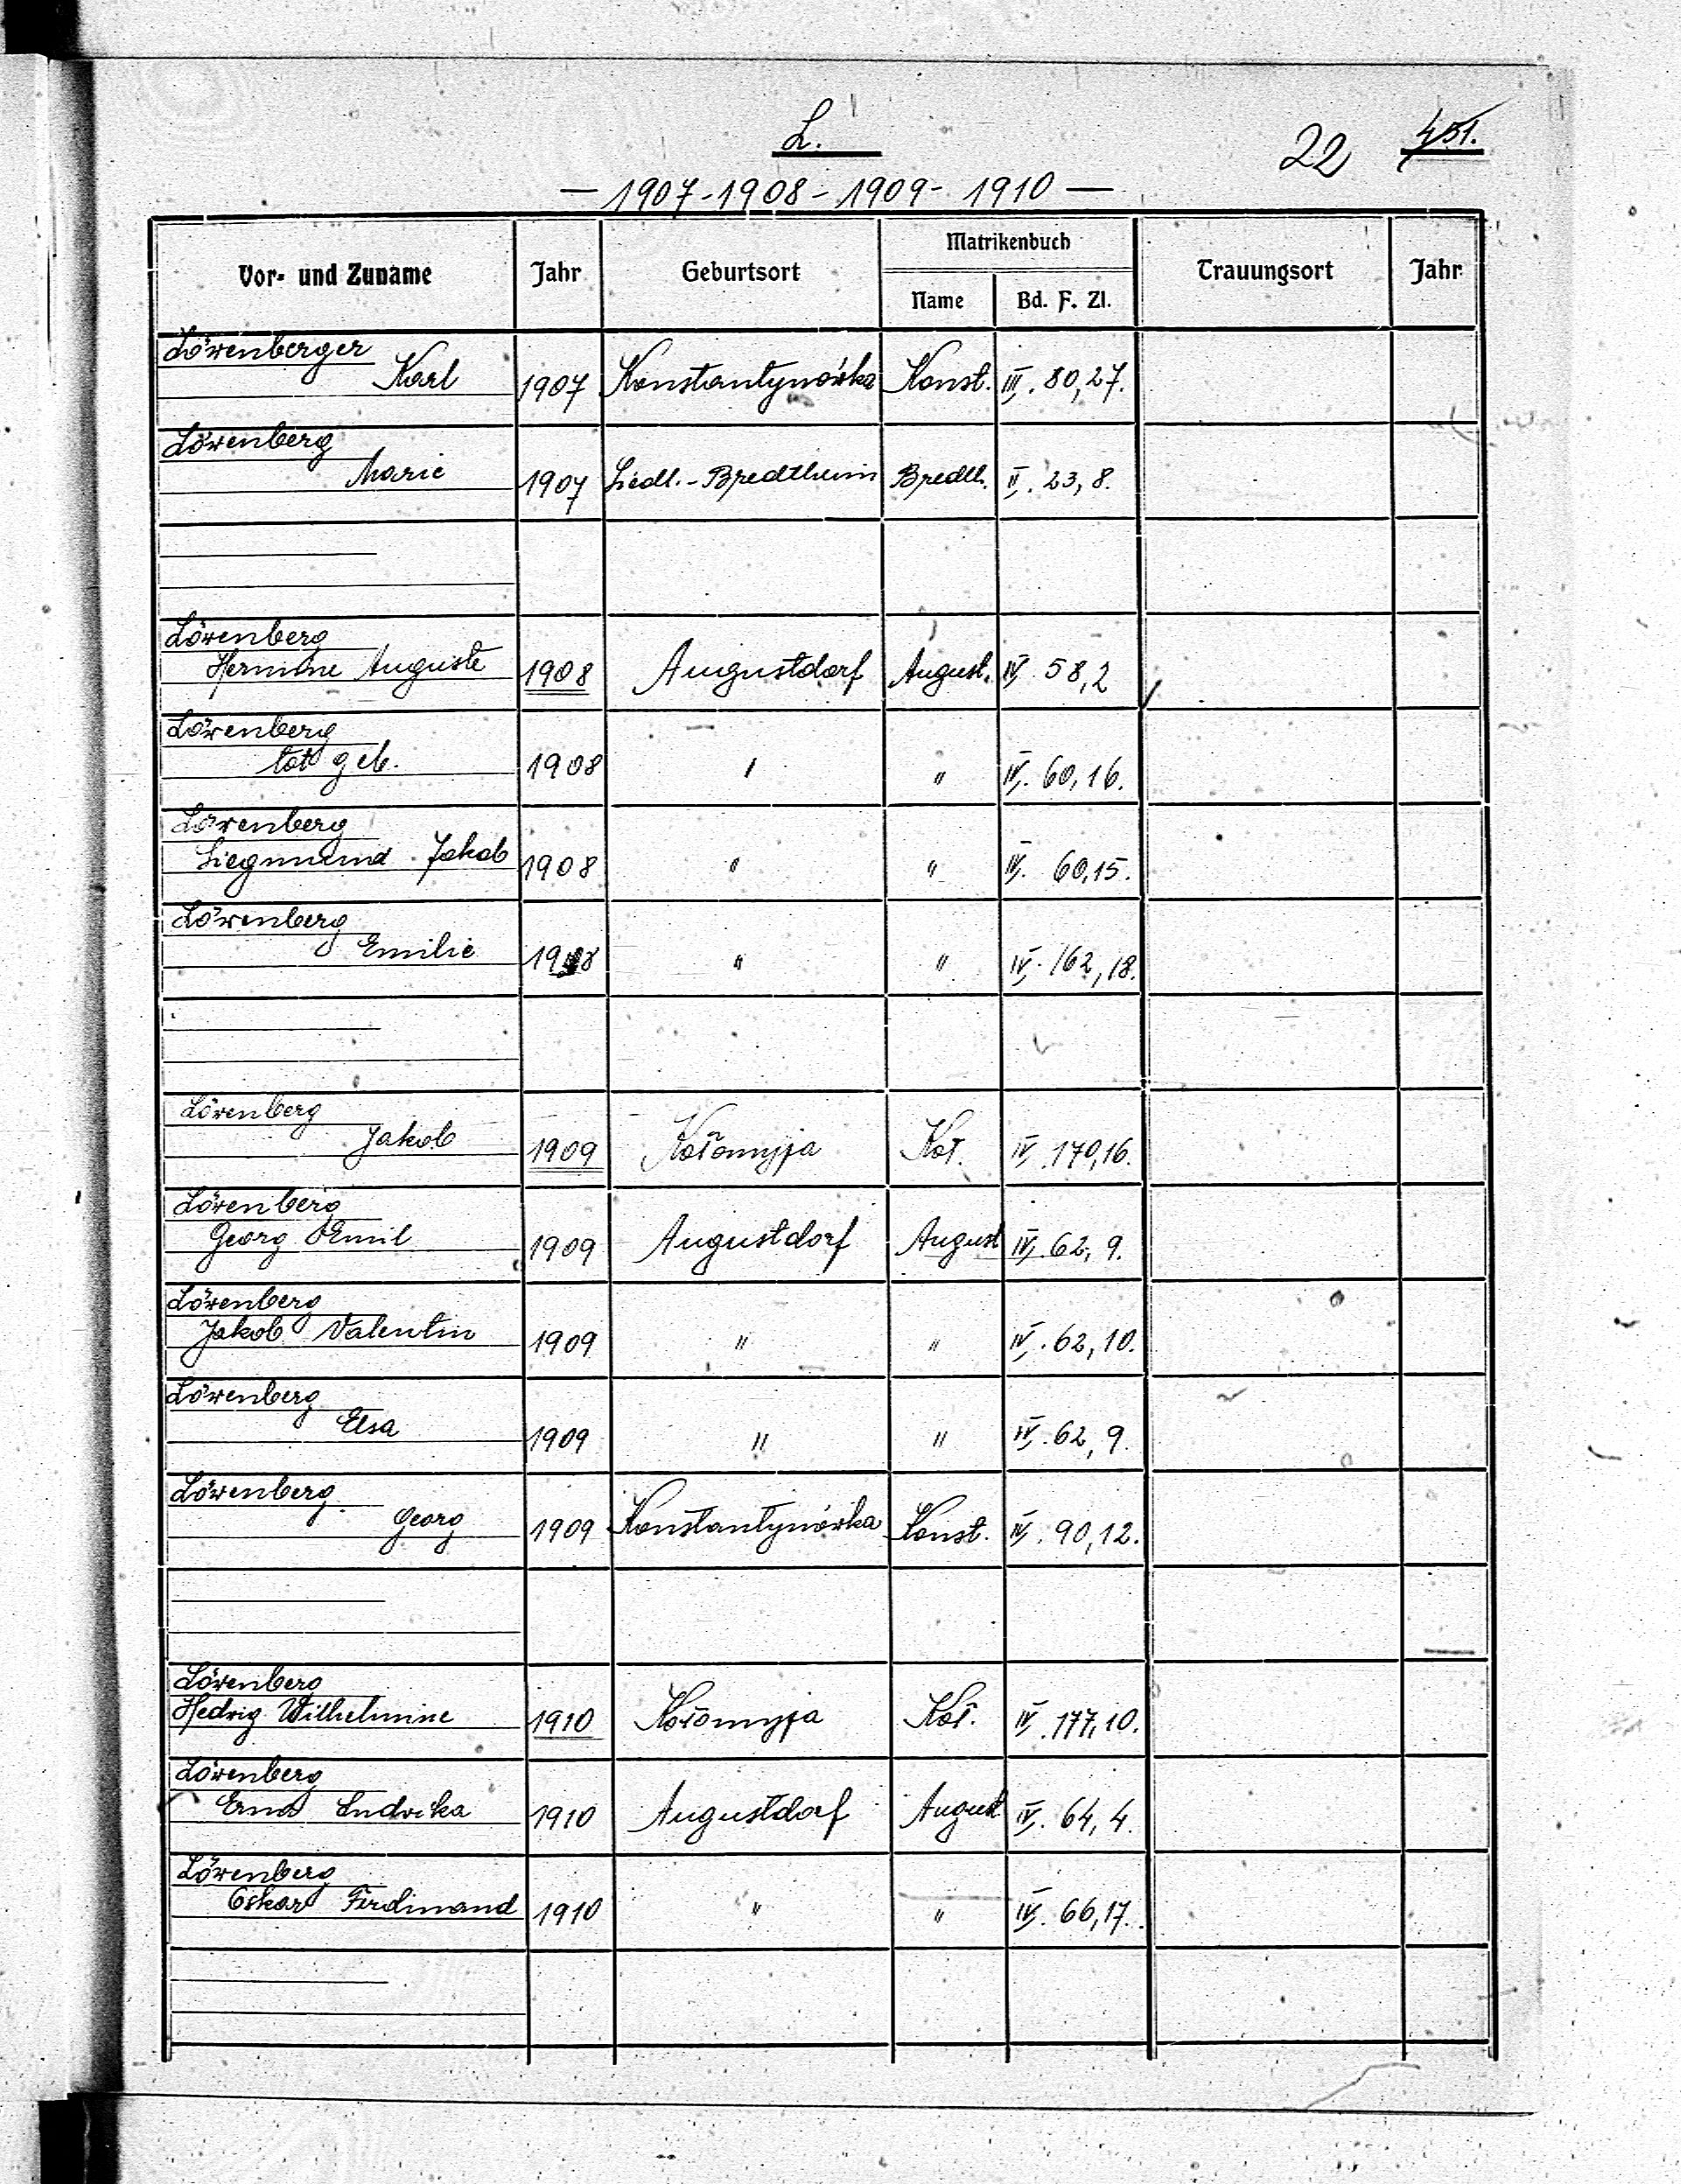 L.
22 451.
— 1907-1908-1909-1910 —
Vor- und Zuname Jahr Geburtsort Matrikenbuch Trauungsort Jahr
Name Bd. F. Zl.
Löwenberger
Karl 1907 Konstantynówka Konst. III. 80,27.
Löwenberg
Marie 1907 Siedl.-Bredtheim Bredth. II. 23,8.
Löwenberg
Hermine Auguste 1908 Augustdorf August. IV. 58,2
Löwenberg
tot geb. 1908 " " IV. 60,16.
Löwenberg
Siegmund Jakob 1908 " " IV. 60,15.
Löwenberg
Emilie 1908 " " IV. 162,18.
Löwenberg
Jakob 1909 Kołomyja Koł. IV. 170,16.
Löwenberg
Georg Emil 1909 Augustdorf August IV. 62,9.
Löwenberg
Jakob Valentin 1909 " " IV. 62,10.
Löwenberg
Elsa 1909 " " IV. 62,9.
Löwenberg
Georg 1909 Konstantynówka Konst. IV. 90,12.
Löwenberg
Hedwig Wilhelmine 1910 Kołomyja Koł. IV. 177,10.
Löwenberg
Erna Ludwika 1910 Augustdorf August IV. 64,4.
Löwenberg
Oskar Ferdinand 1910 " " IV. 66,17.